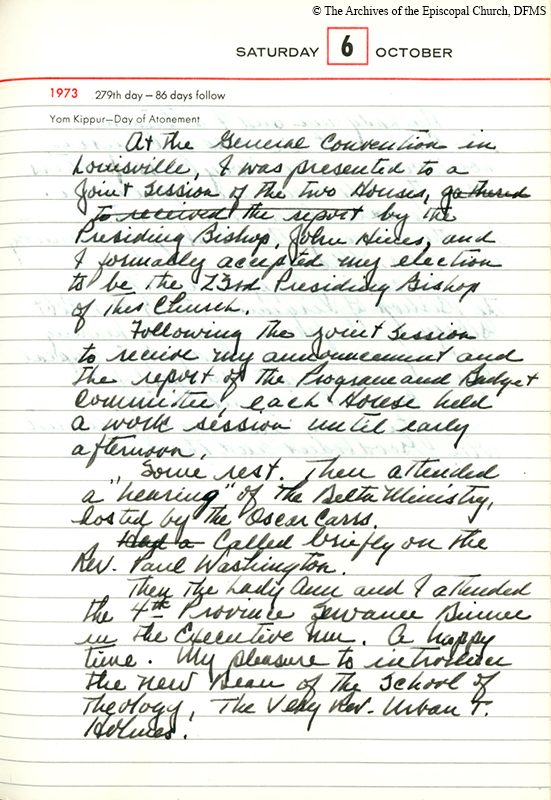 © The Archives of the Episcopal Church, DFMS
SATURDAY 6 OCTOBER
1973 279th day – 86 days follow
Yom Kippur—Day of Atonement
At the General Convention in
Louisville, I was presented to a
Joint Session of the two Houses, gathered
to received the report by the
Presiding Bishop, John Hines, and
I formally accepted my election
to be the 23rd Presiding Bishop
of this Church.
Following the joint Session
to receive my announcement and
the report of the Program and Budget
Committee, each House held
a work session until early
afternoon.
Some rest. Then attended
a "hearing" of the Delta Ministry,
hosted by the Oscar Carrs.
Had a Called briefly on the
Rev. Paul Washington.
Then the Lady Ann and I attended
the 4th Province Sewanee Dinner
in the Executive Inn. A happy
time. My pleasure to introduce
the new Dean of the School of
Theology, The Very Rev. Urban T.
Holmes.